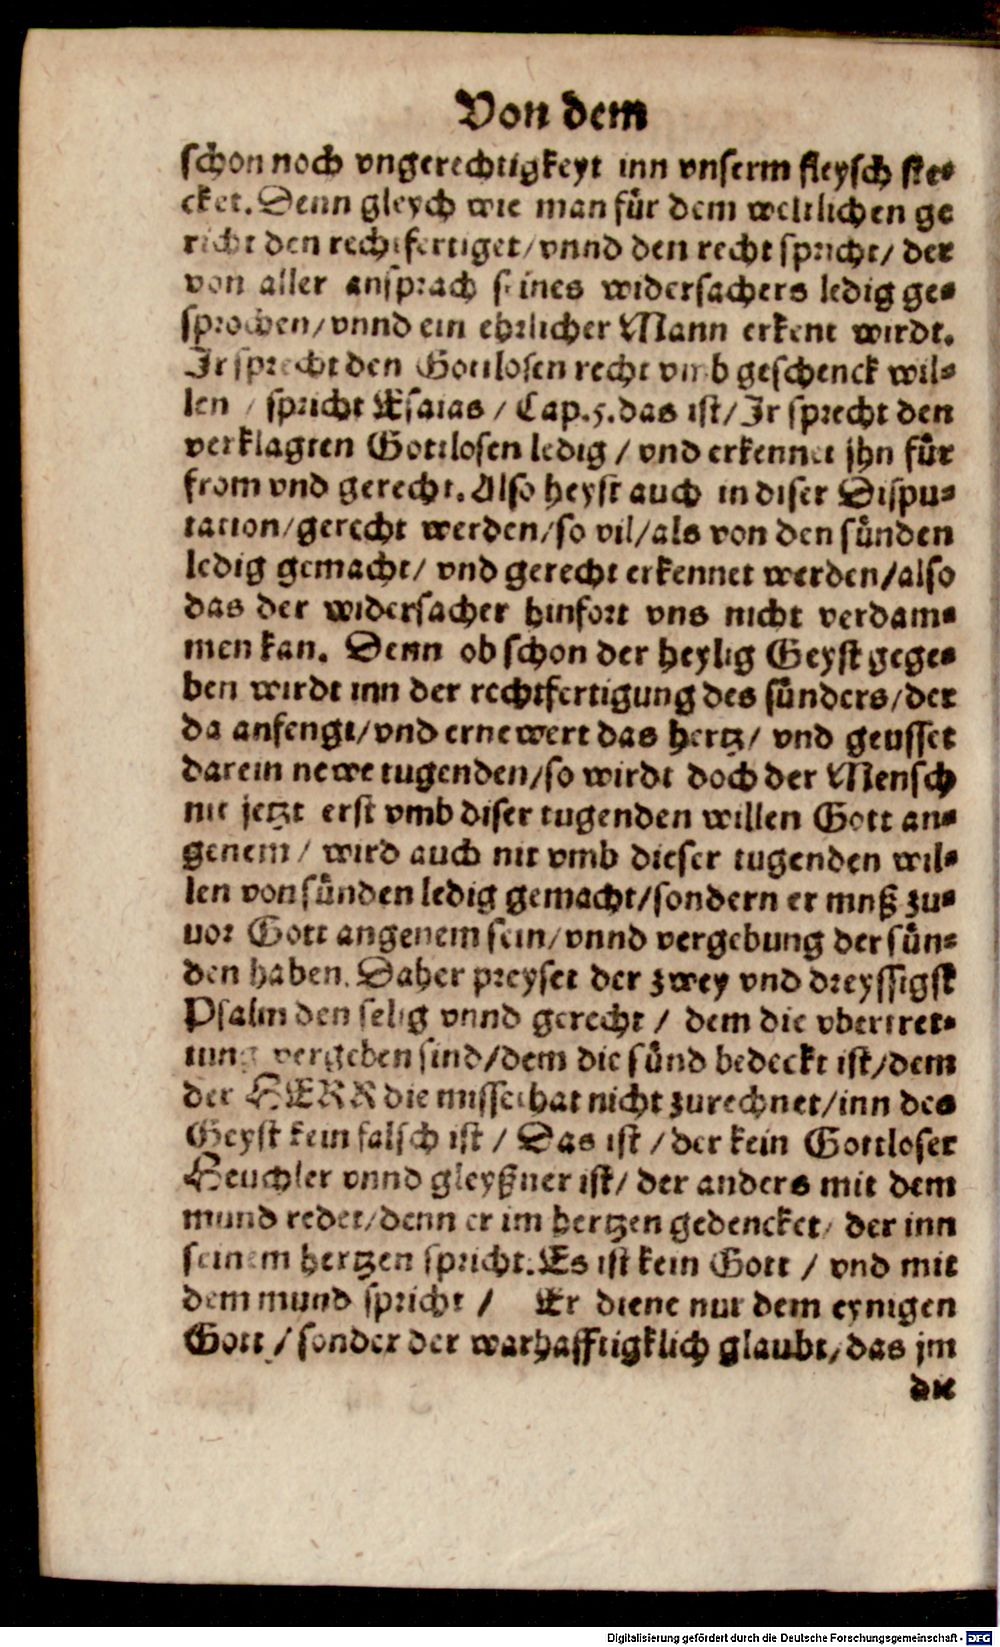 Von dem
schon noch vngerechtigkeyt inn vnserm fleysch ste-
cket. Denn gleych wie man für dem weltlichen ge
richt den rechtfertiget/ vnnd den recht spricht/ der
von aller ansprach seines widersachers ledig ge-
sprochen/ vnnd ein ehrlicher Mann erkent wirdt.
Ir sprecht den Gottlosen recht vmb geschenck wil-
len / spricht Esaias / Cap. 5. das ist/ Ir sprecht den
verklagten Gottlosen ledig / vnd erkennet jhn für
from vnd gerecht. Also heyst auch in diser Dispu-
tation/ gerecht werden/ so vil/ als von den sünden
ledig gemacht/ vnd gerecht erkennet werden/ also
das der widersacher hinfort vns nicht verdam-
men kan. Denn ob schon der heylig Geyst gege-
ben wirdt inn der rechtfertigung des sünders/ der
da anfengt/ vnd ernewert das hertz/ vnd geusset
darein newe tugenden/ so wirdt doch der Mensch
nit jetzt erst vmb diser tugenden willen Gott an-
genem / wird auch nit vmb dieser tugenden wil-
len von sünden ledig gemacht/ sondern er mnß zu-
uor Gott angenem sein/ vnnd vergebung der sün-
den haben. Daher preyset der zwey vnd dreyssigst
Psalm den selig vnnd gerecht / dem die vbertret-
tung vergeben sind/ dem die sünd bedeckt ist/ dem
der HERR die missethat nicht zurechnet/ inn des
Geyst kein falsch ist / Das ist / der kein Gottloser
Heuchler vnnd gleyßner ist/ der anders mit dem
mund redet/ denn er im hertzen gedencket/ der inn
seinem hertzen spricht. Es ist kein Gott / vnd mit
dem mund spricht / Er diene nur dem eynigen
Gott / sonder der warhafftigklich glaubt/ das jm
die
Digitalisierung gefördert durch die Deutsche Forschungsgemeinschaft - DFG